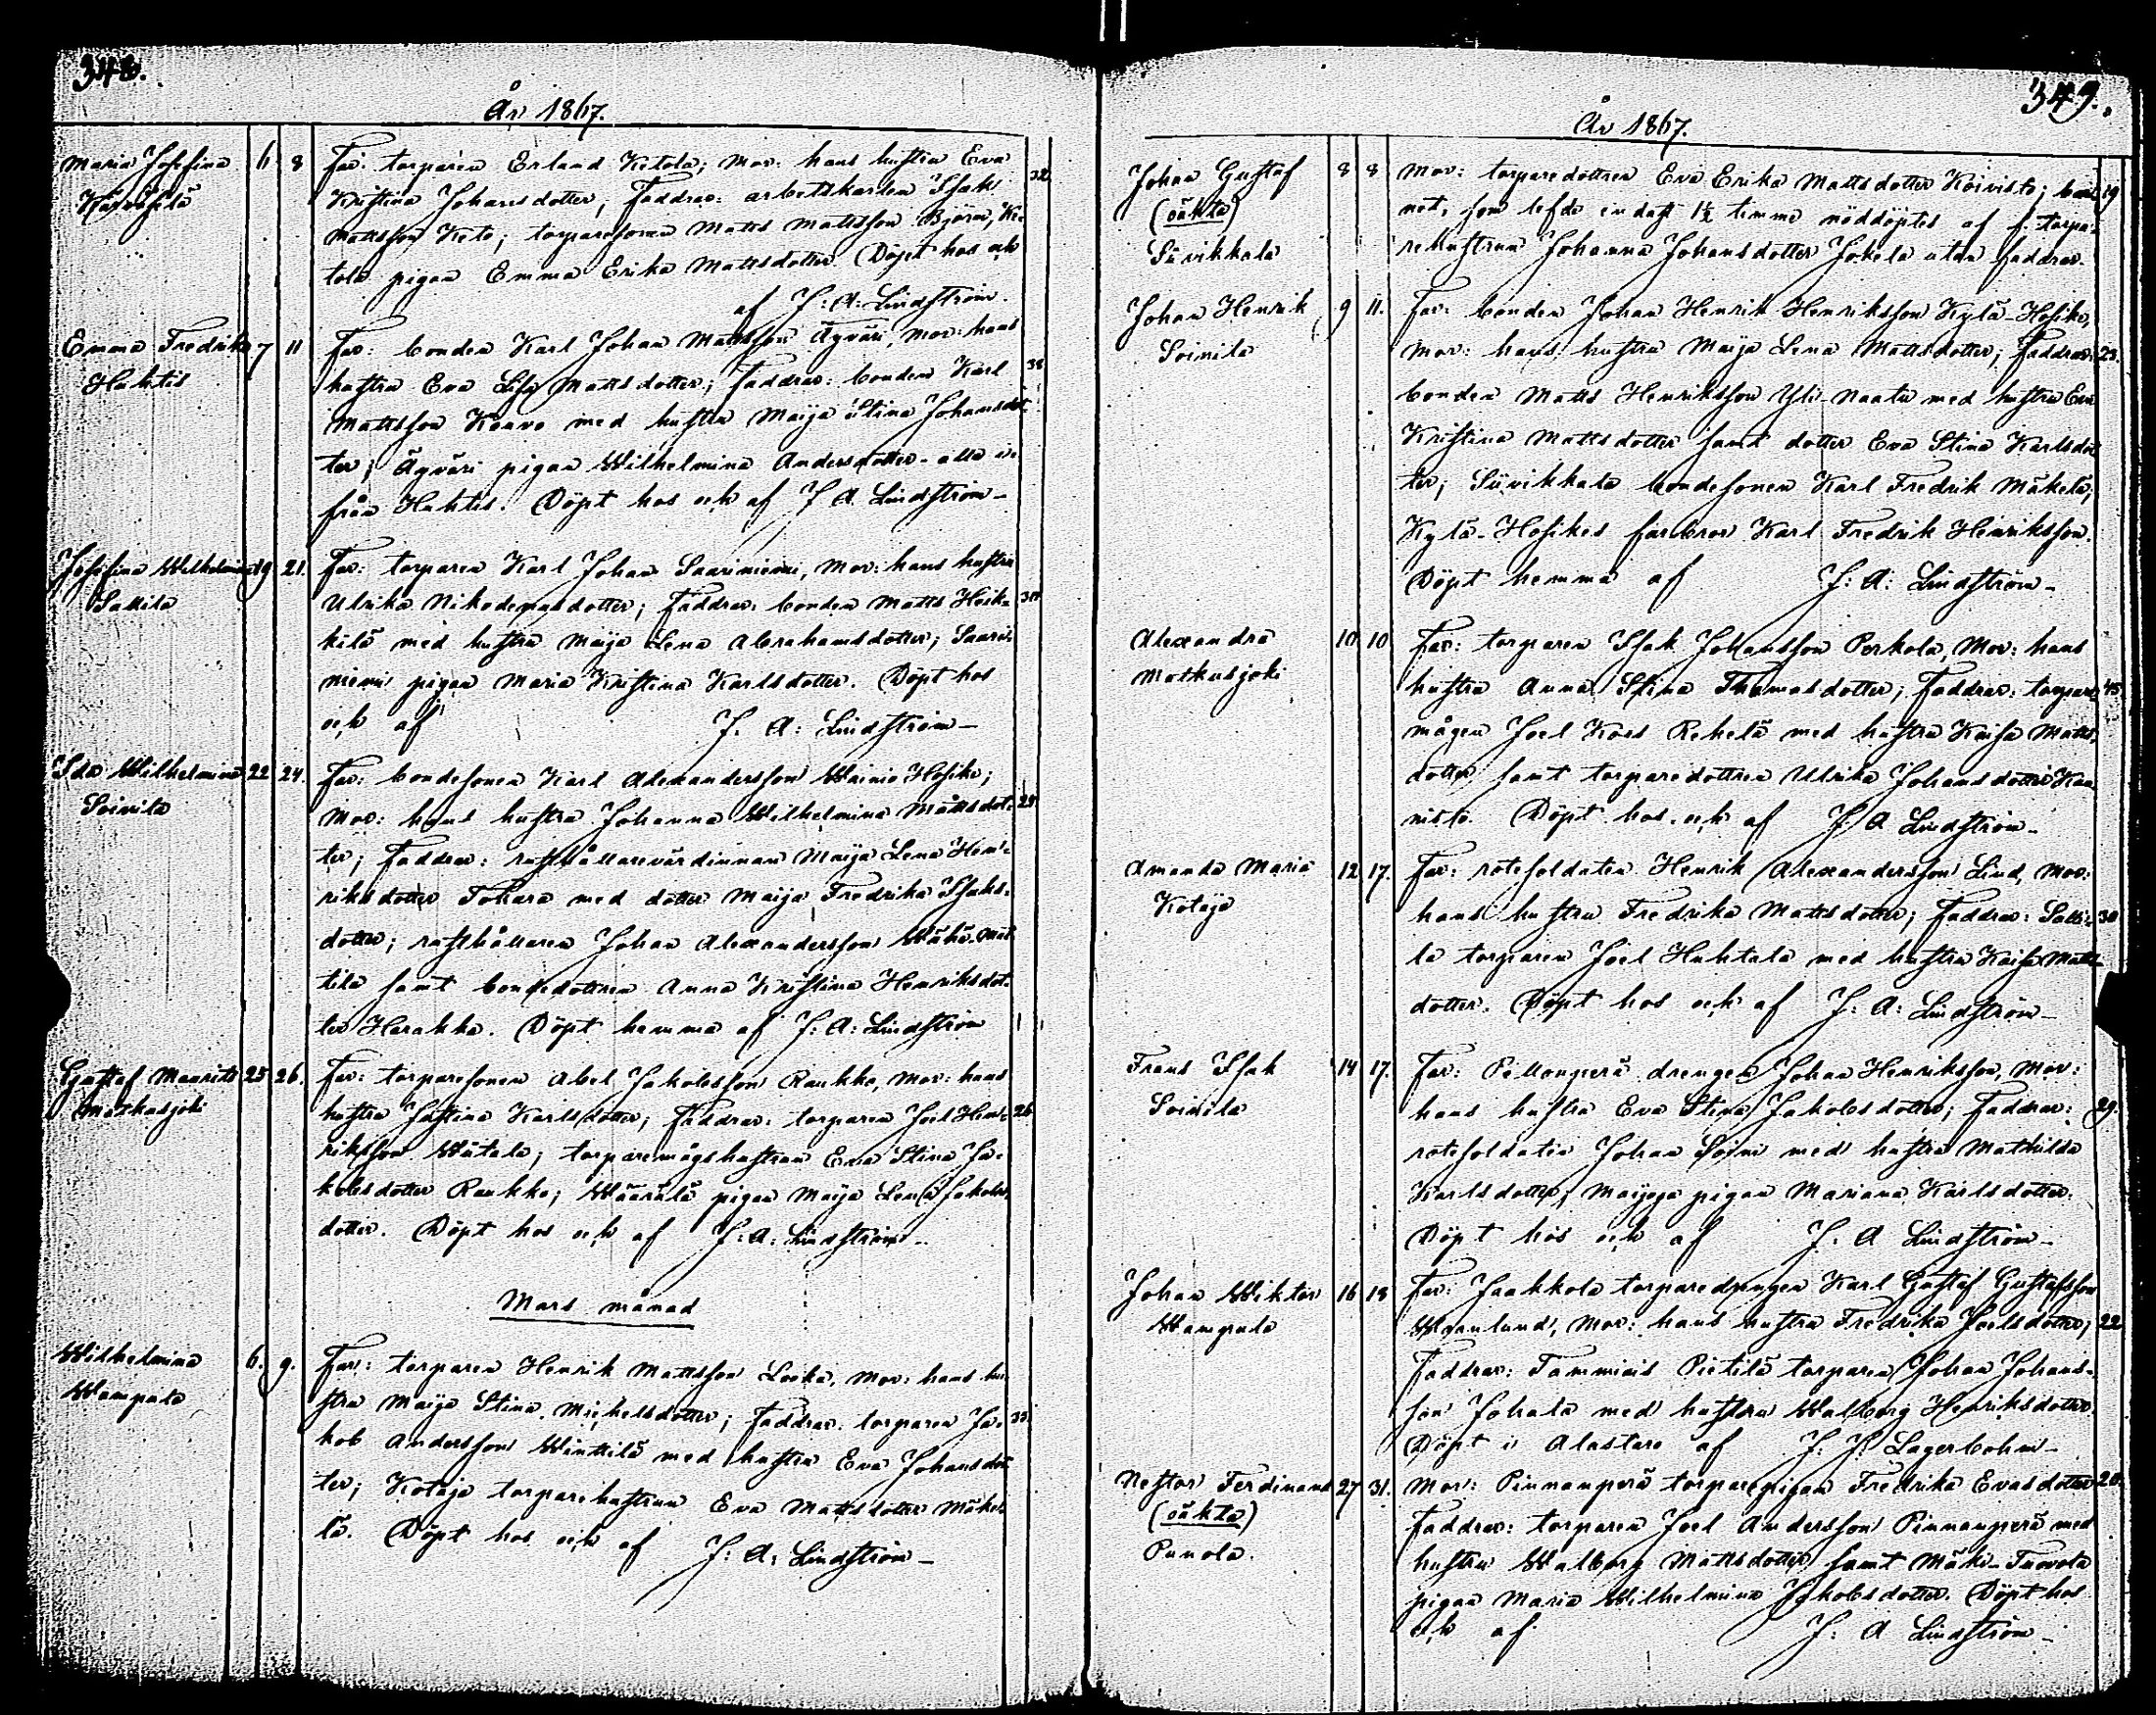 348.
År 1867.
Maria Josefina 6 8 Far: torparen Erland Ketola; Mor: hans hustru Eva 32
Kristina Johansdotter, Faddrar: arbetskarlen Isak
Mattsson Keto; torparesonen Matts Mattsson Björn, Ke-
tola pigan Emma Erika Mattsdotter. Döpt hos och
af J: A: Lindström.
Emma Fredrika 7 11 Far: bonden Karl Johan Mattsson Ägväri, Mor: hans
Huhtis hustru Eva Lisa Mattsdotter; Faddrar: bonden Karl 38
Mattsson Konvo med hustru Maija Stina Johansdot-
ter; Ägväri pigan Wilhelmina Andersdotter - alla
från Huhtis. Döpt hos och af J A. Lindström -
Josefina Wilhelmina 19 21. Far: torparen Karl Johan Saariniemi, Mor: hans hustru
Sallila Ulrika Nikodemusdotter; Faddrar: bonden Matts Heik-
kilä med hustru Maija Lena Abrahamsdotter; Saari-
niemi pigan Maria Kristina Karlsdotter. Döpt hos
och af J. A: Lindström -
Ida Wilhelmina 22 24. Far: bondesonen Karl Alexandersson Wainio Hosike;
Soinila Mor: hans hustru Johanna Wilhelmina Mattsdot-
ter; Faddrar: rusthållarevärdinnan Maija Lena Hen-
riksdotter Tohara med dotter Maija Fredrika Isaks-
dotter; rusthållaren Johan Alexandersson Wähä-Mat-
tila samt bondedottren Anna Kristina Henriksdot-
ter Harakka. Döpt hemma af J: A: Lindström
Gustaf Maurits 25 26. Far: torparesonen Abel Jakobsson Raukko, Mor: hans
Matkusjoki hustru Justina Karlsdotter; Faddrar: torparen Joel Hen- 26
riksson Wätälä; torparemågshustrun Eva Stina Ja-
kobsdotter Raukko; Wäärälä pigan Maija Lena Jakobs-
dotter. Döpt hos och af J: A: Lindström -
Mars månad
Wilhelmina 6. 9. Far: torparen Henrik Mattsson Looka, Mor: hans hu-
Wampula stru Maija Stina Michelsdotter; Faddrar torparen Ja-
kob Andersson Winttilä med hustru Eva Johansdot-
ter; Kotaja torparehustrun Eva Mattsdotter Mäke-
lä. Döpt hos och af J: A: Lindström -
349.
År 1867.
Johan Gustaf 8 8 Mor: torparedottren Eva Erika Mattsdotter Koivisto; bar- 19
(oäkta) net, som lefde endast 1½ timme nöddöptes af f. torpa-
Siivikkala rehustrun Johanna Johansdotter Jokela utan faddrar.
Johan Henrik 9 11. Far: bonden Johan Henrik Henriksson Kylä-Hosike,
Soinila Mor: hans hustru Maija Lena Mattsdotter; Faddrar: 23.
bonden Matts Henriksson Yli-Naatu med hustru Eva
Kristina Mattsdotter samt dotter Eva Stina Karlsdot-
ter; Siivikkala bondesonen Karl Fredrik Mäkelä,
Kylä-Hosikes farbror Karl Fredrik Henriksson.
Döpt hemma af J: A: Lindström -
Alexandra 10 10 Far: torparen Isak Johansson Perkola, Mor: hans
Matkusjoki hustru Anna Stina Thomasdotter; Faddrar: torpare- 45.
mågen Joel Koes Rehelä med hustru Kaisa Matts-
dotter samt torparedottren Ulrika Johansdotter Kan-
nisto. Döpt hos och af J A Lindström -
Amanda Maria 12 17. Far: rotesoldaten Henrik Alexandersson Lind, Mor:
Kotaja hans hustru Fredrika Mattsdotter; Faddrar: Salli- 30
la torparen Joel Huhtala med hustru Kaisa Matts-
dotter. Döpt hos och af J: A: Lindström -
Frans Isak 14 17. Far: Pellonperä drengen Johan Henriksson, Mor:
Soinila hans hustru Eva Stina Jakobsdotter; Faddrar: 29.
rotesoldaten Johan Soini med hustru Mathilda
Karlsdotter; Maijaja pigan Mariana Karlsdotter.
Döpt hos och af J. A Lindström -
Johan Wiktor 16 18 Far: Jaakkola torparedrengen Karl Gustaf Gustafsson
Wampula Mor: hans hustru Fredrika Joelsdotter; 22
Faddrar: Tammiais Pietilä torparen Johan Johans-
son Johala med hustru Walborg Henriksdotter.
Döpt i Alastaro af J. J. Lagerbohm -
Nestor Ferdinand 27 31. Mor: Pinnanperä torparepigan Fredrika Evasdotter 20.
(oäkta) Faddrar: torparen Joel Andersson Pinnanperä med
Punola. hustru Walborg Mattsdotter samt Mäki-Tuovola
pigan Maria Wilhelmina Jakobsdotter. Döpt hos
och af J: A Lindström -